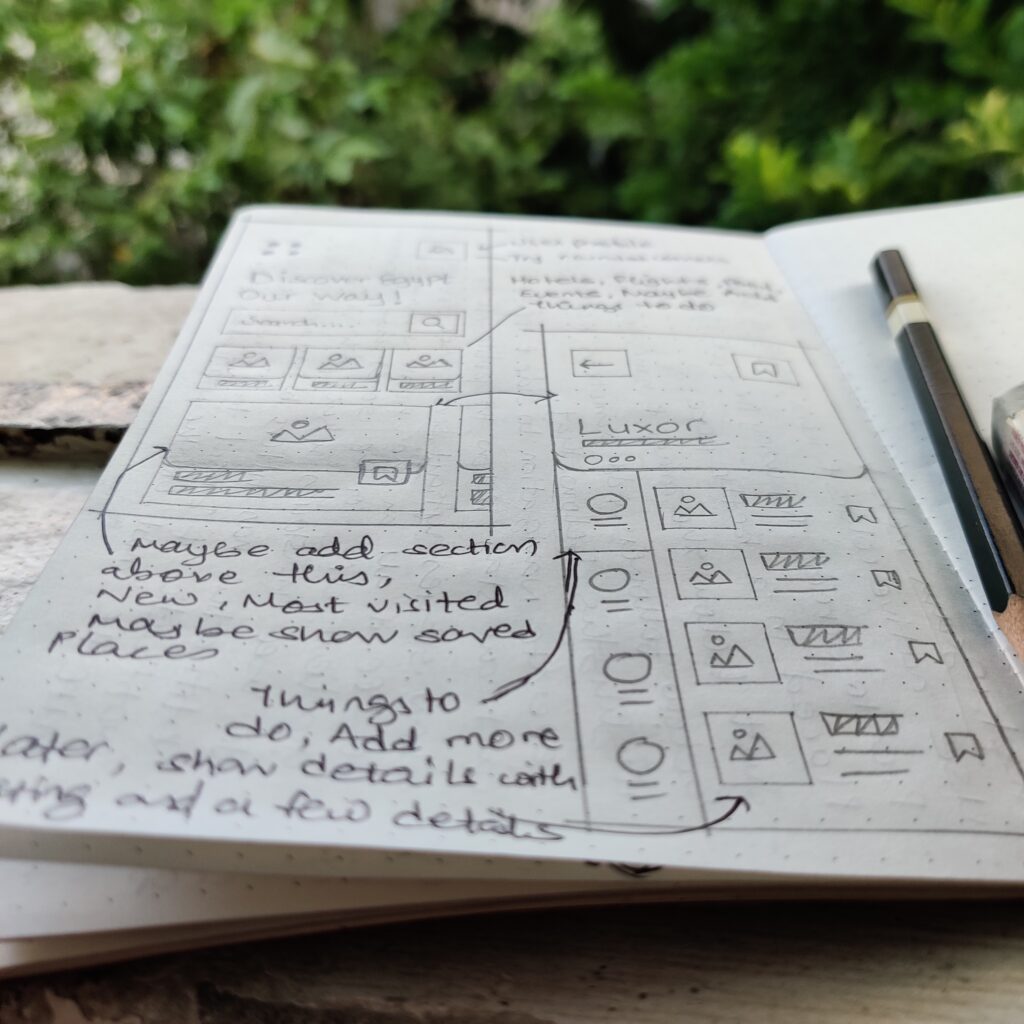 User profile
Try
Discover Egypt
Our way!
Hotels, Flights, Food,
Events, Maybe Add
things to do
Search....
Luxor
Maybe add section
above this,
New, Most visited
Maybe show saved
Places
Things to
do, Add more
later, show details with
and a few details